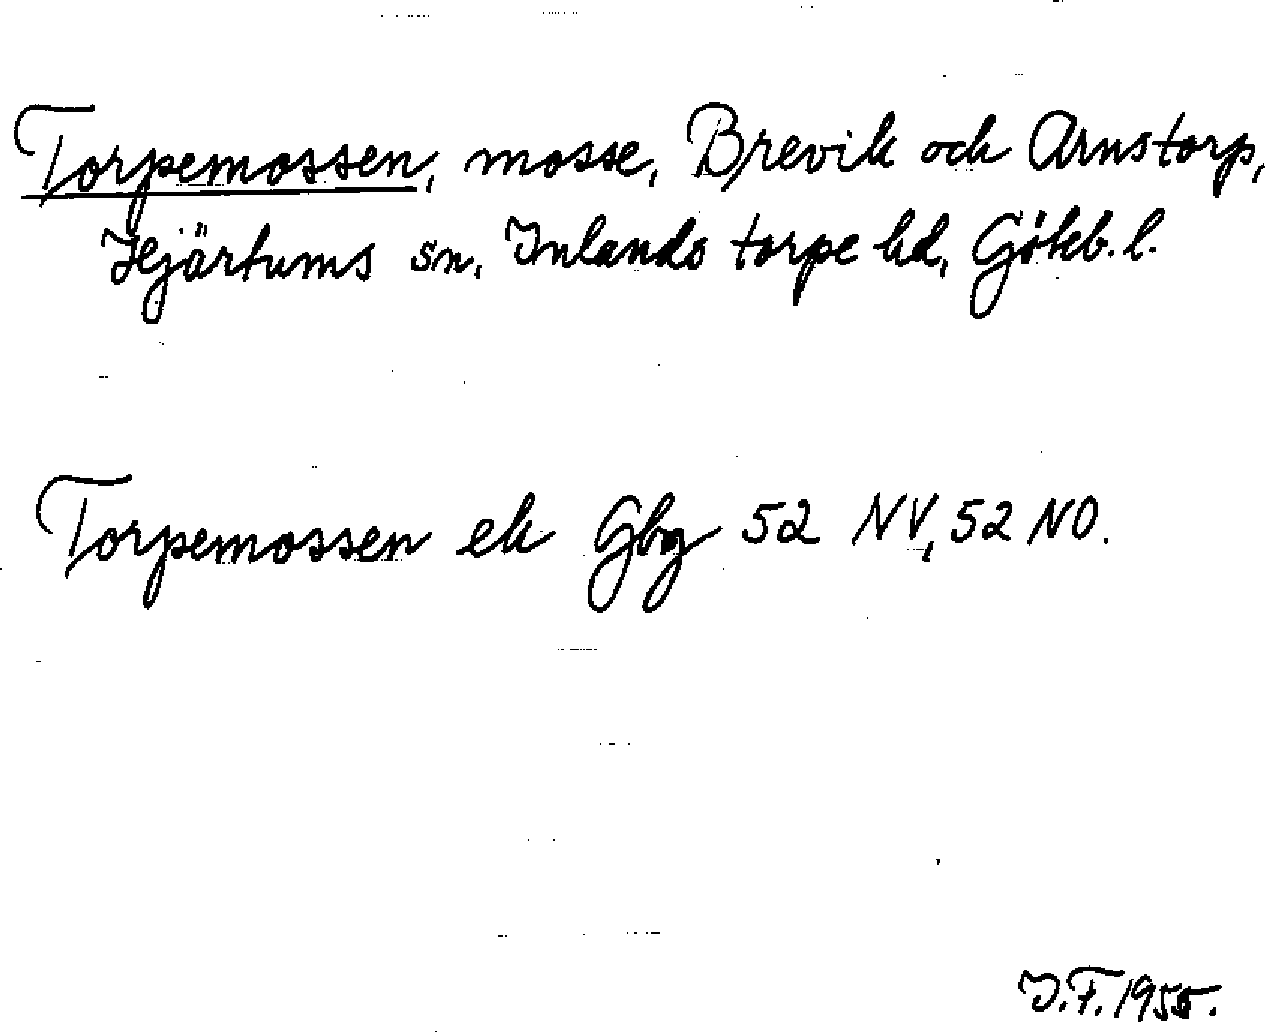 Torpemossen, mosse, Brevik och Arnstorp,
Hjärtums sn, Inlands torpe hd, Göteb. l.
Torpemossen ek Gbg 52 NV, 52 NO.
J.F. 1955.